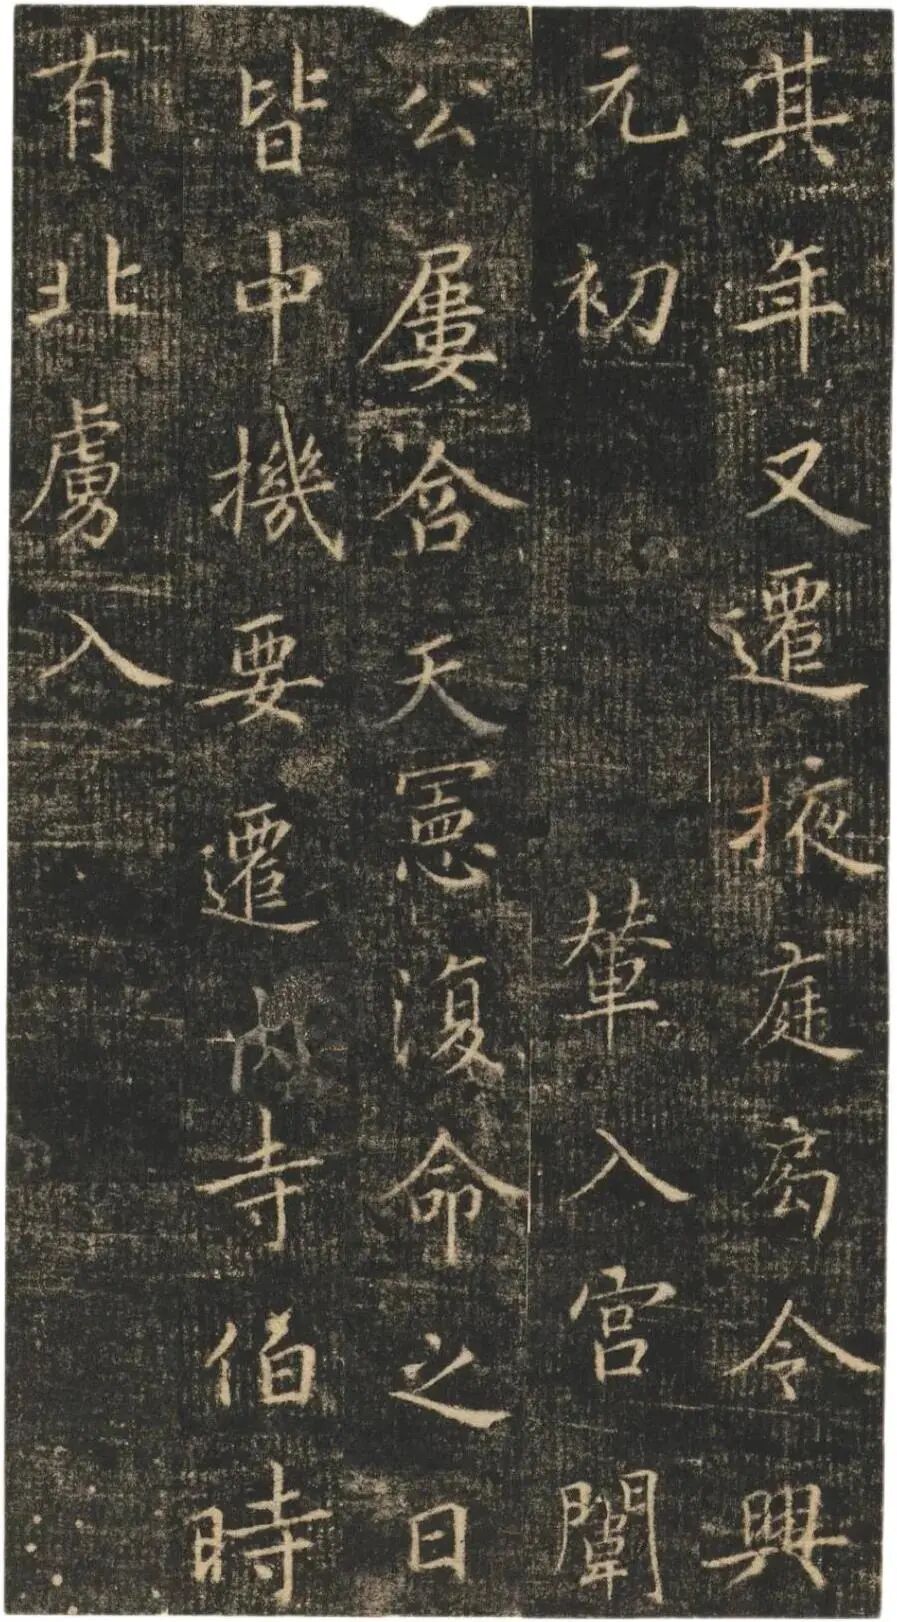 其年又遷掖庭局令興
元初 輦入宮闈
公屢含天憲復命之日
皆中機要遷内寺伯時
有北虜入